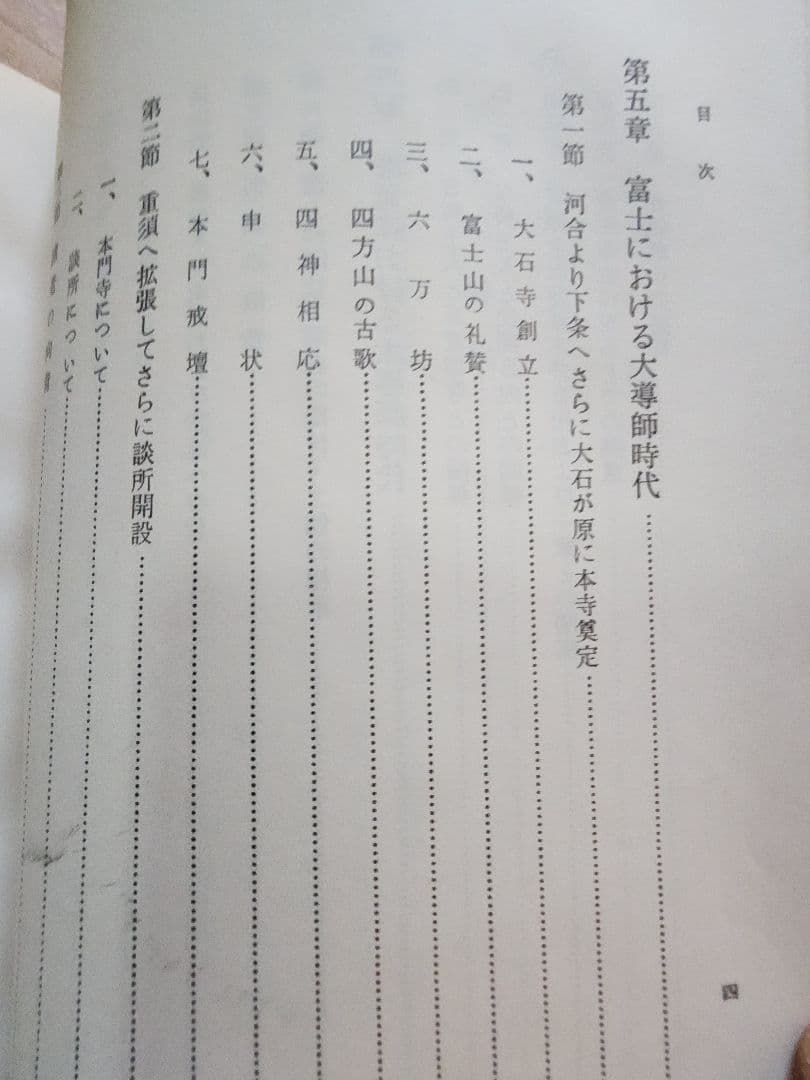 目次
第五章　富士における大導師時代
第一節　河合より下条へさらに大石が原に本寺奠定
一、大石寺創立
二、富士山の礼賛
三、六万坊
四、四方山の古歌
五、四神相応
六、申状
七、本門戒壇
第二節　重須へ拡張してさらに談所開設
一、本門寺について
二、談所について
四